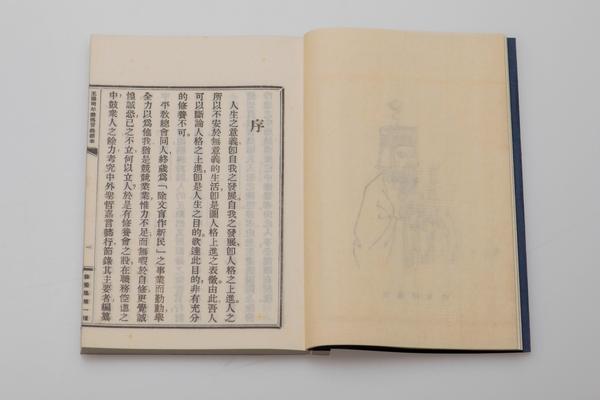 序
人生之意義卽自我之發展自我之發展卽人格之上進人之
所以不安於無意義的生活卽是圖人格上進之表徵由此吾人
可以斷論人格之上進卽是人生之目的欲達此目的非有充分
的修養不可
平敎總會同人終歲爲「除文盲作新民」之事業而勤勤舉
全力以爲他我猶是競競業業惟力不足而無暇於自修更覺誠
惶誠恐已之不立何以立人於是有修養會之設在職務倥傯之
中鼓衆人之餘力考究中外聖哲嘉言懿行節錄其主要者編纂
王陽明年
一